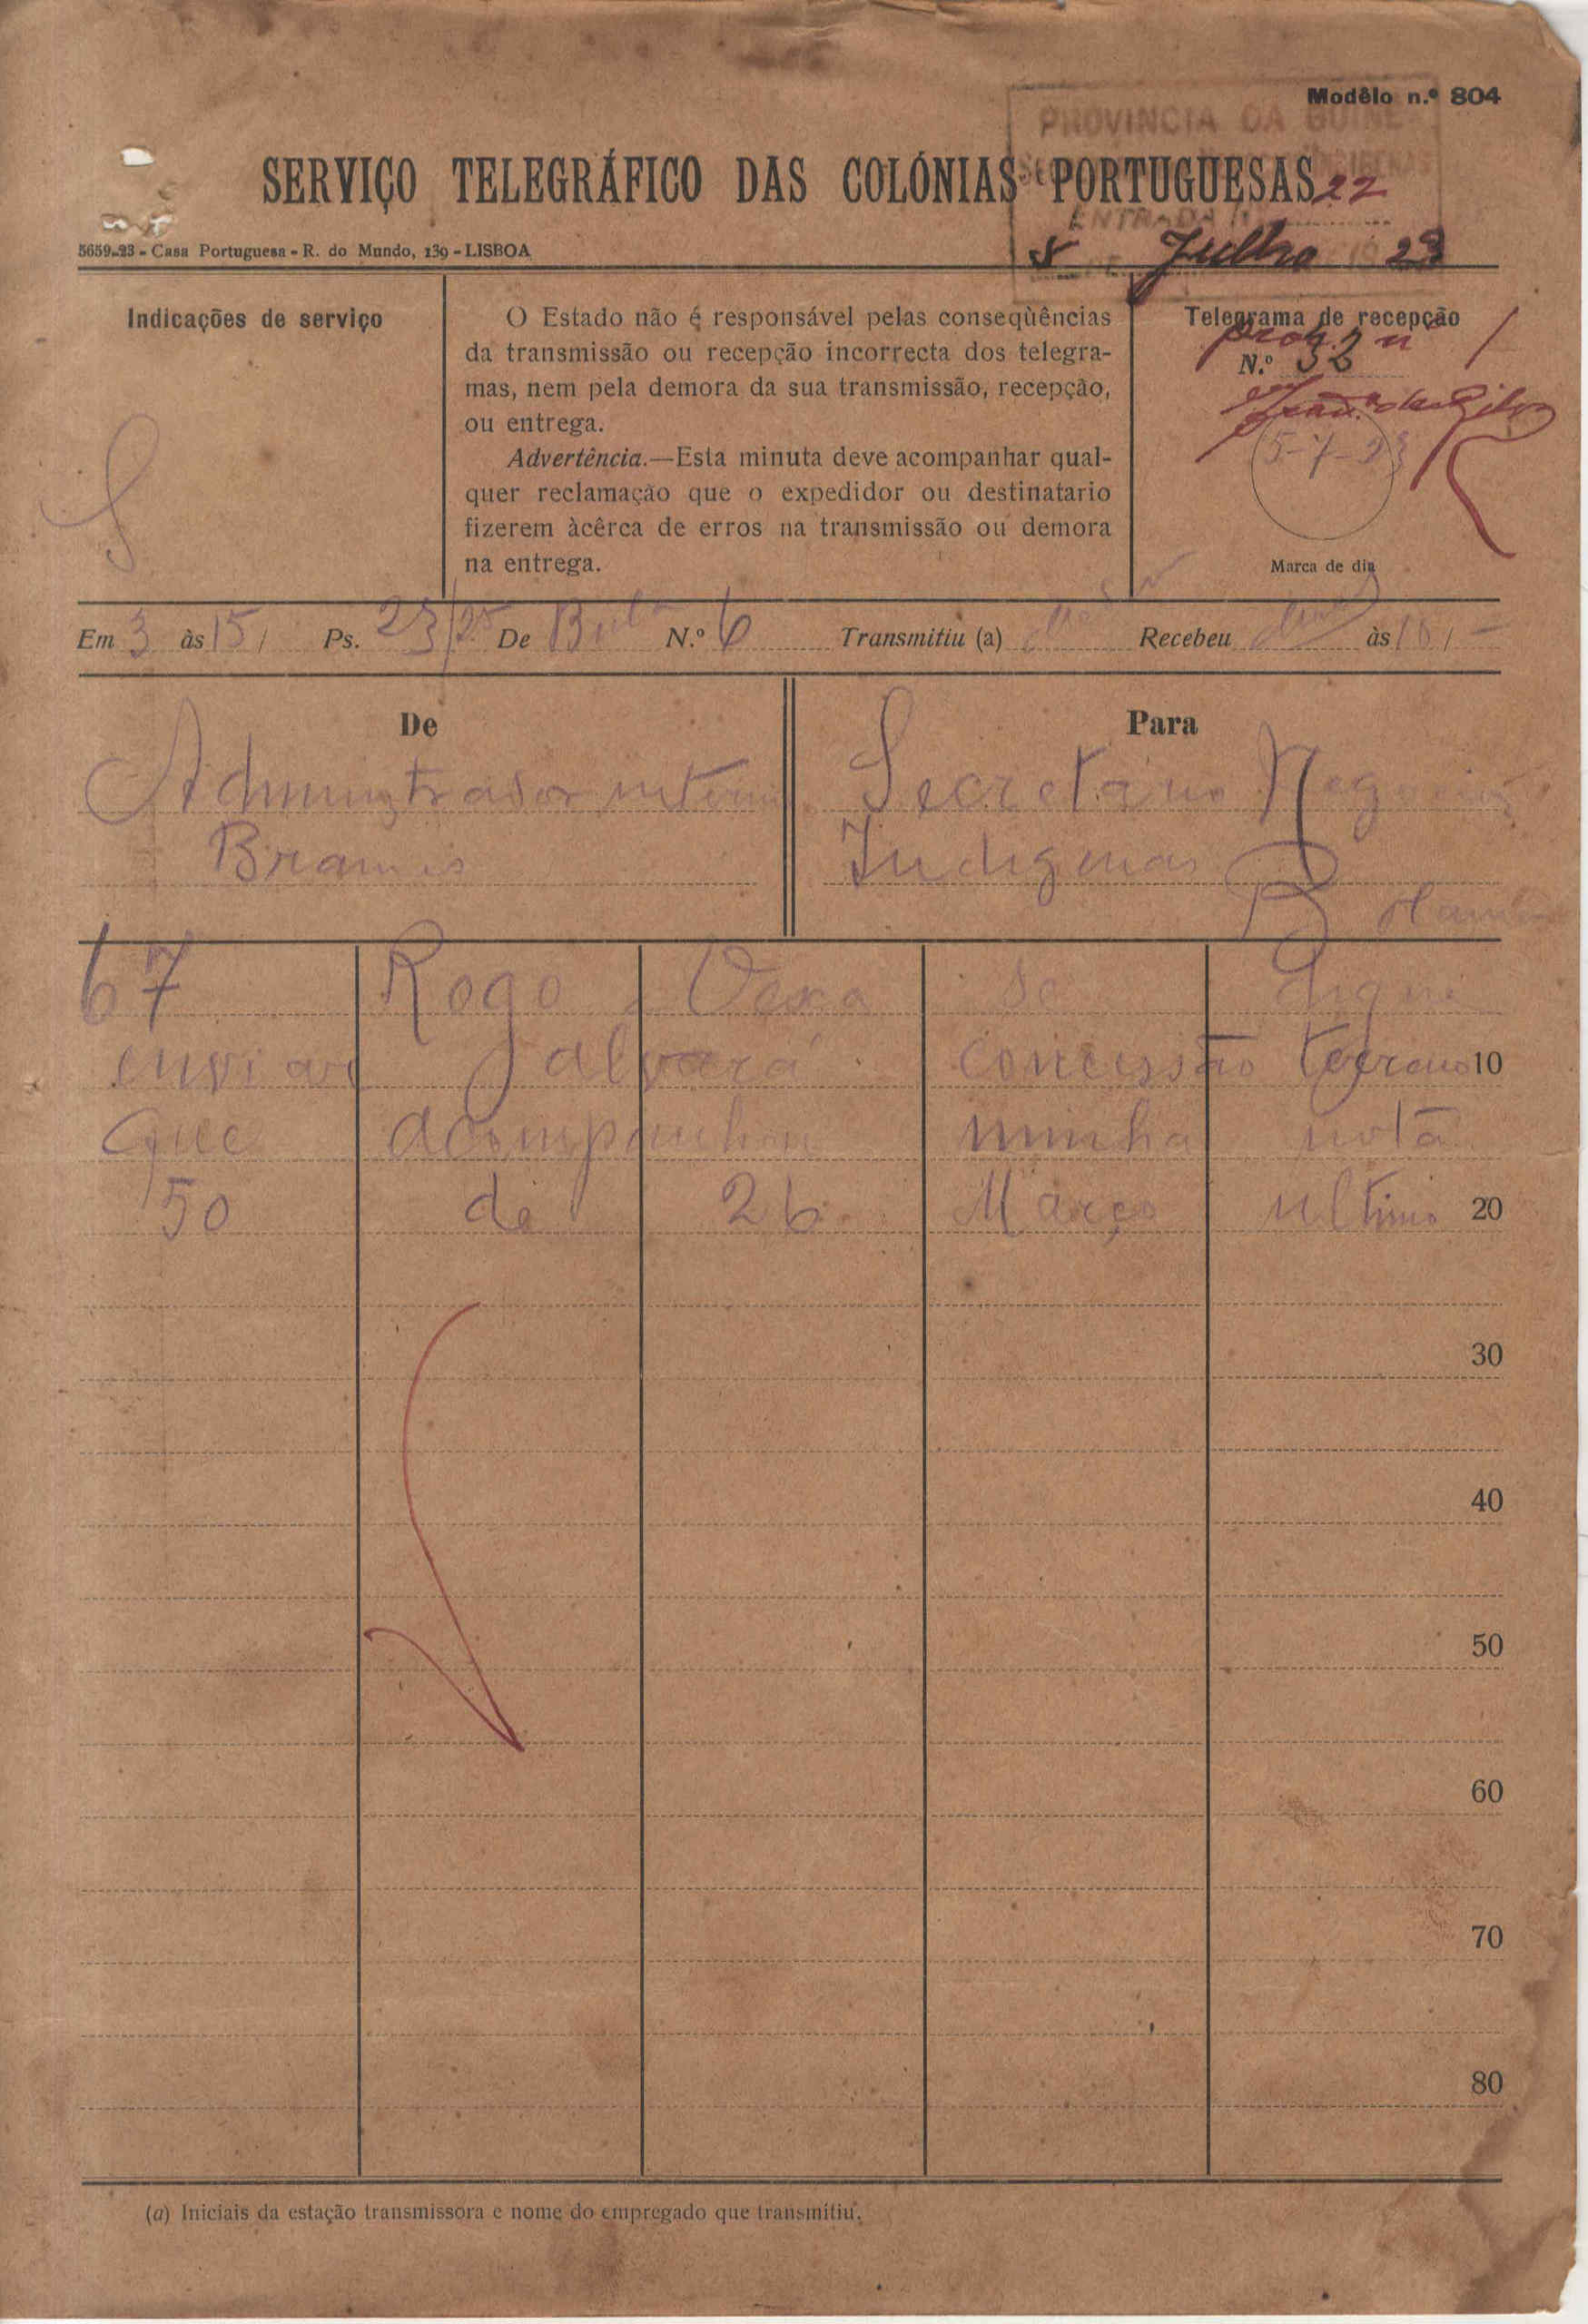 Modêlo n.º 804
PROVINCIA DA GUINÉ
SERVIÇO TELEGRÁFICO DAS COLÓNIAS PORTUGUESAS
22
ENTRADA N.º
5659-23 - Casa Portuguesa - R. do Mundo, 139 - LISBOA
5 Julho 1923
Indicações de serviço
O Estado não é responsável pelas conseqùências
da transmissão ou recepção incorrecta dos telegra-
mas, nem pela demora da sua transmissão, recepção,
ou entrega.
Advertência.—Esta minuta deve acompanhar qual-
quer reclamação que o expedidor ou destinatario
fizerem àcêrca de erros na transmissão ou demora
na entrega.
Telegrama de recepção
N.º 32
5-7-23
Marca de dia
Em 3 às 15/ Ps. 23/25 De Bula N.º 6 Transmitiu (a) Recebeu às 16/-
De
Administrador interino
Brames
Para
Secretário Negocios
Indigenas
Bolama
67 Rogo Vexa se digne
enviar alvará concessão terreno 10
que acompanhou minha nota
50 de 26 Março ultimo 20
30
40
50
60
70
80
(a) Iniciais da estação transmissora e nome do empregado que transmitiu.